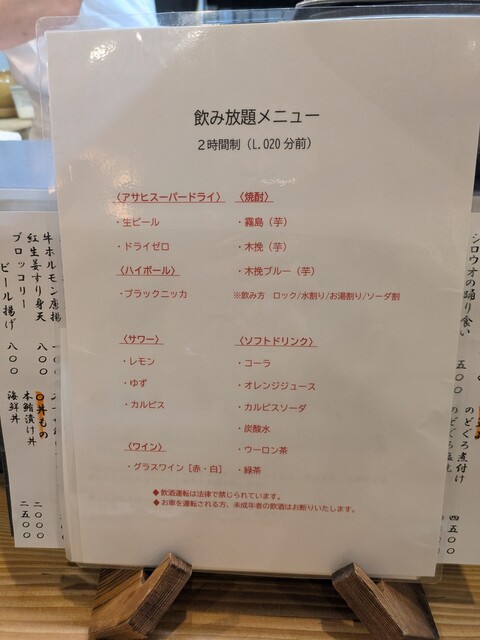 飲み放題メニュー
２時間制（L.O20 分前）
〈アサヒスーパードライ〉
・生ビール
・ドライゼロ
〈ハイボール〉
・ブラックニッカ
〈焼酎〉
・霧島（芋）
・木挽（芋）
・木挽ブルー（芋）
※飲み方 ロック/水割り/お湯割り/ソーダ割
〈サワー〉
・レモン
・ゆず
・カルピス
〈ワイン〉
・グラスワイン［赤・白］
〈ソフトドリンク〉
・コーラ
・オレンジジュース
・カルピスソーダ
・炭酸水
・ウーロン茶
・緑茶
◆飲酒運転は法律で禁じられています。
◆お車を運転される方、未成年者の飲酒はお断りいたします。
牛ホルモン唐揚
紅生姜すり身天 八〇〇
ブロッコリー
ビール揚げ 八〇〇
〇丼もの
本鮪漬け丼 二〇〇〇
海鮮丼 二五〇〇
シロウオの踊り食い 五〇〇
のどぐろ煮付け 四五〇〇
のどぐろ塩